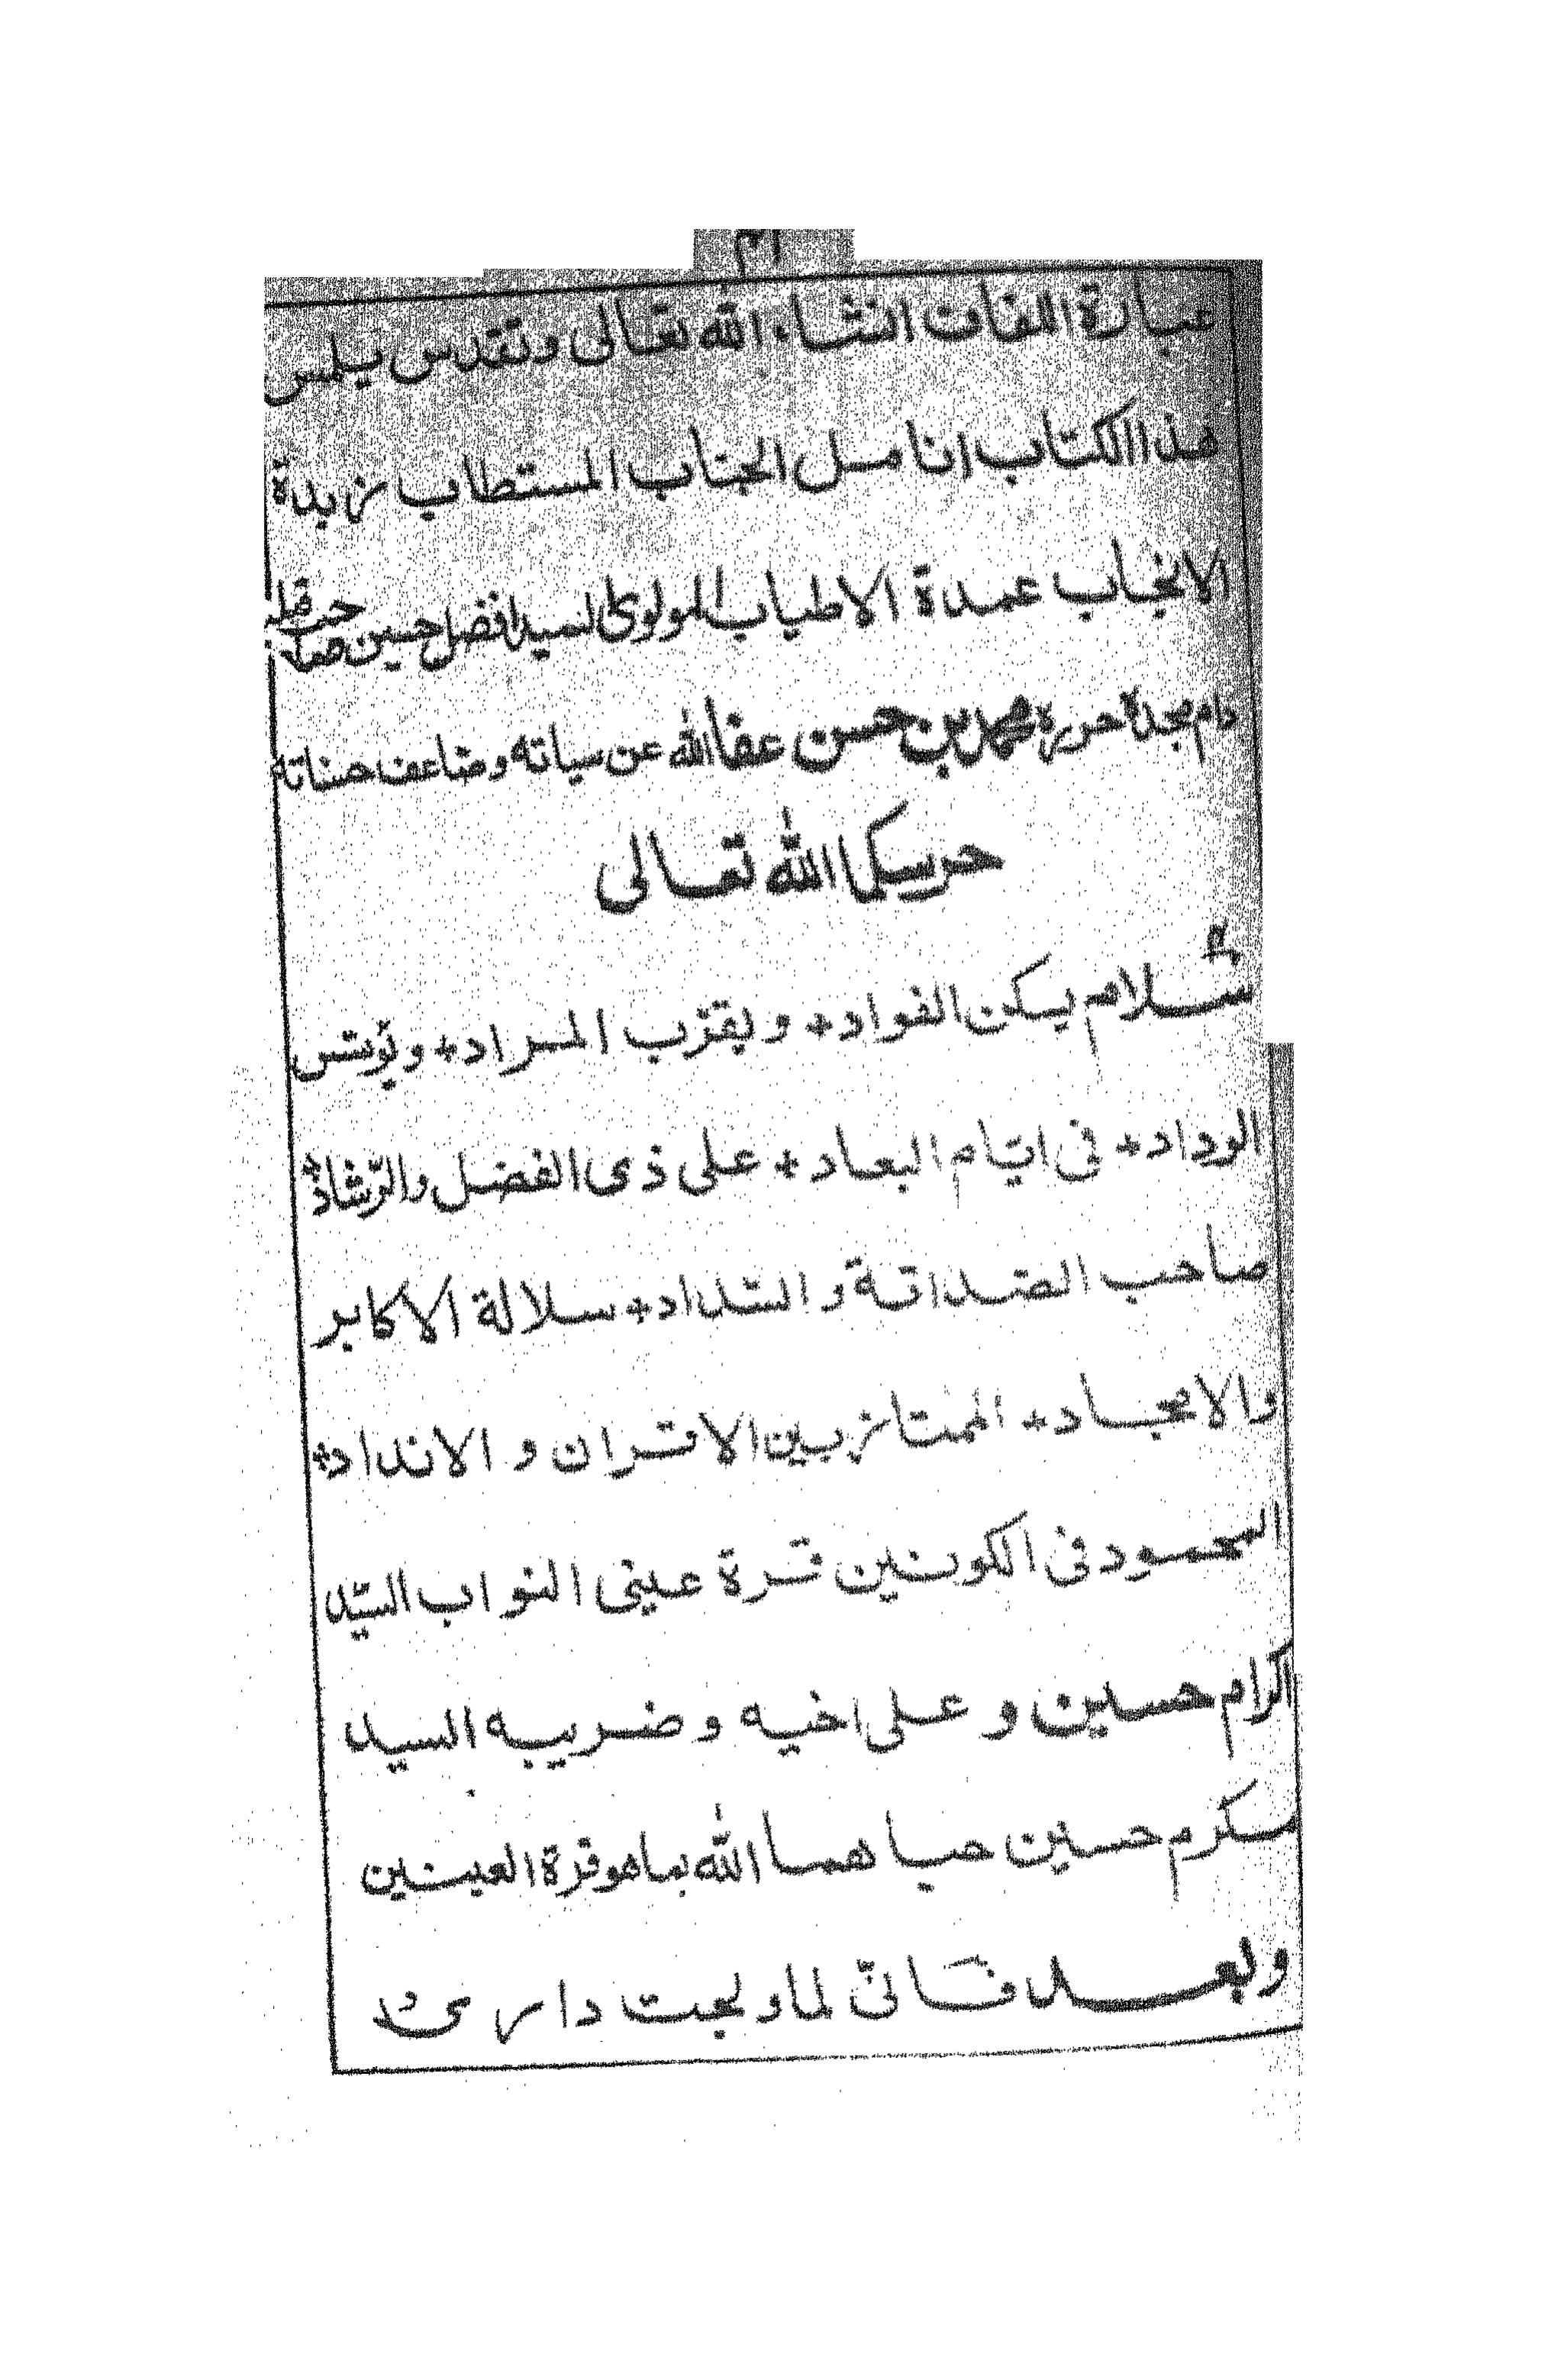 عبارة اللفاف انشاء الله تعالى وتقدس يلمس
هذا الكتاب انامل الجناب المستطاب زبدة
الانجاب عمدة الاطياب المولوى السيد افضل حسين صاحب قبله
دام مجده حرره محمد بن حسن عفا الله عن سياته وضاعف حسناته
حرسكما الله تعالى
سلام يسكن الفواد + ويقرب المراد + ويونس
الوداد + فى ايّام البعاد + على ذى الفضل والرّشاد +
صاحب الصداقة و السّداد + سلالة الاكابر
والامجاد + الممتاز بين الاقران و الانداد +
المحمود فى الكونين قرة عينى النواب السّيّد
اكرام حسين و على اخيه و ضريبه السيد
مكرم حسين حباهما الله بما هو قرة العينين
وبعد فانّى لما ولجت دارى